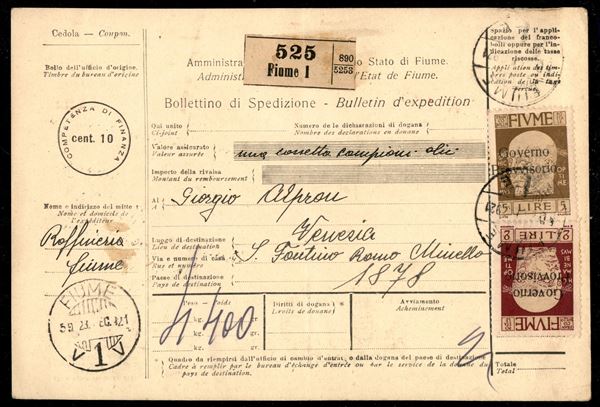 Cedola — Coupon.
Bollo dell'ufficio d'origine.
Timbre du bureau d'origine
COMPETENZA DI FINANZA
cent. 10
Nome e indirizzo del mitte
Nom et domicile de
l'expéditeur
Raffineria
Fiume
FIUME
1
525
Fiume 1
890
5258
Amministra
o Stato di Fiume.
Administ
l'Etat de Fiume.
Bollettino di Spedizione - Bulletin d'expedition
Qui unito
Ci-joint
Numero de la dichiarazioni di dogana
Nombre des declarations en douane
Valore assicurato
Valeur assurée
una cassetta campioni olii
Importo della rivalsa
Montant du remboursement
Al
A
Giorgio
Luogo di destinazione
Lieu de destination
Venezia
Via e numero di casa
Rue et numéro
S.
1878
Paese di destinazione
Pays de destination
Peso - Poids
kg. gr.
kg. gr.
kg. gr.
400
Diritti di dogana
Droits de douane
Avviamento
Acheminement
Quadro da riempirsi dall'ufficio di cambio d'entrat. o dalla dogana del paese di destinazione
Cadre à remplir par le bureau d'échange d'entrée ou par le service de la douane du
pays de destination.
Totale
Total
Spazio per l'appli-
cazione dei franco-
bolli oppure per l'in-
dicazione delle tasse
riscosse.
Application des tim-
bres poste ou indi-
cation de la taxe
perçue
FIUME
Governo
Provvisorio
5 LIRE 5
2 LIRE 2
Governo
Provvisorio
FIUME